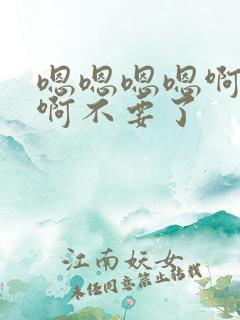 嗯嗯嗯嗯啊
啊不要了
江南妖女
未经同意禁止转载